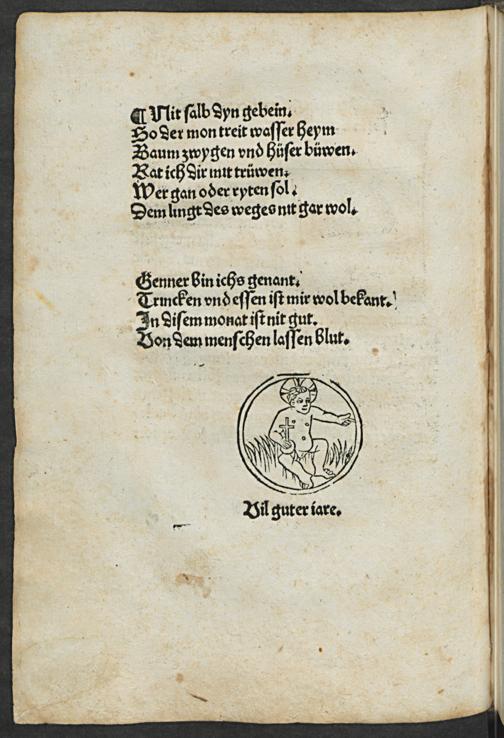 ¶ Nit salb dyn gebein.
So der mon treit wasser heym
Baum zwygen vnd hüser büwen.
Rat ich dir mit trüwen.
Wer gan oder ryten sol.
Dem lingt des weges nit gar wol.
Genner bin ichs genant.
Trincken vnd essen ist mir wol bekant.
In disem monat ist nit gut.
Von dem menschen lassen blut.
Vil guter iare.